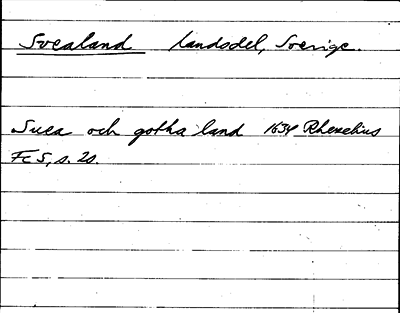 Svealand landsdel, Sverige.
Suea och gotha land 1634 Rhezelius
FcS, s. 20.